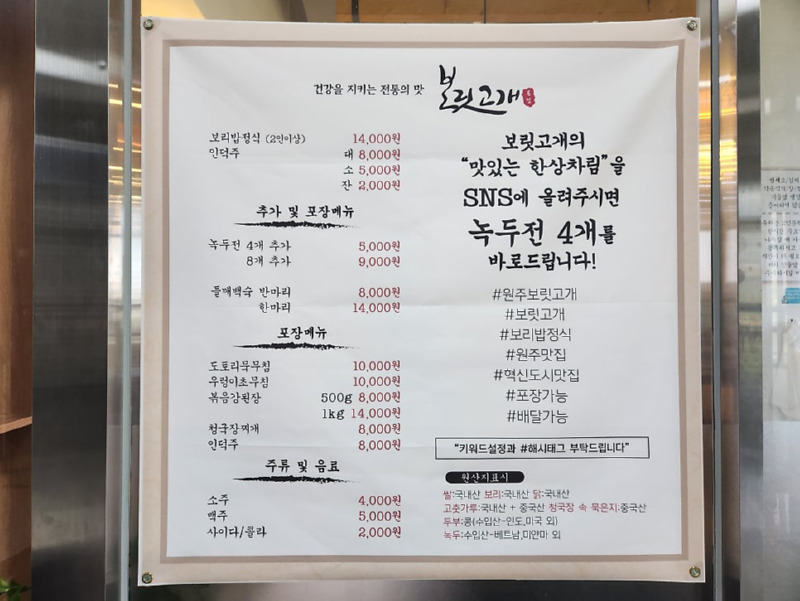 건강을 지키는 전통의 맛
보릿고개
보리밥정식 (2인이상) 14,000원
인덕주 대 8,000원
소 5,000원
잔 2,000원
추가 및 포장메뉴
녹두전 4개 추가 5,000원
8개 추가 9,000원
들깨백숙 반마리 8,000원
한마리 14,000원
포장메뉴
도토리묵무침 10,000원
우렁이초무침 10,000원
볶음강된장 500g 8,000원
1kg 14,000원
청국장찌개 8,000원
인덕주 8,000원
주류 및 음료
소주 4,000원
맥주 5,000원
사이다/콜라 2,000원
보릿고개의
“맛있는 한상차림”을
SNS에 올려주시면
녹두전 4개를
바로드립니다!
#원주보릿고개
#보릿고개
#보리밥정식
#원주맛집
#혁신도시맛집
#포장가능
#배달가능
“키워드설정과 #해시태그 부탁드립니다”
원산지표시
쌀:국내산 보리:국내산 닭:국내산
고춧가루:국내산 + 중국산 청국장 속 묵은지:중국산
두부:콩(수입산-인도,미국 외)
녹두:수입산-베트남,미얀마 외